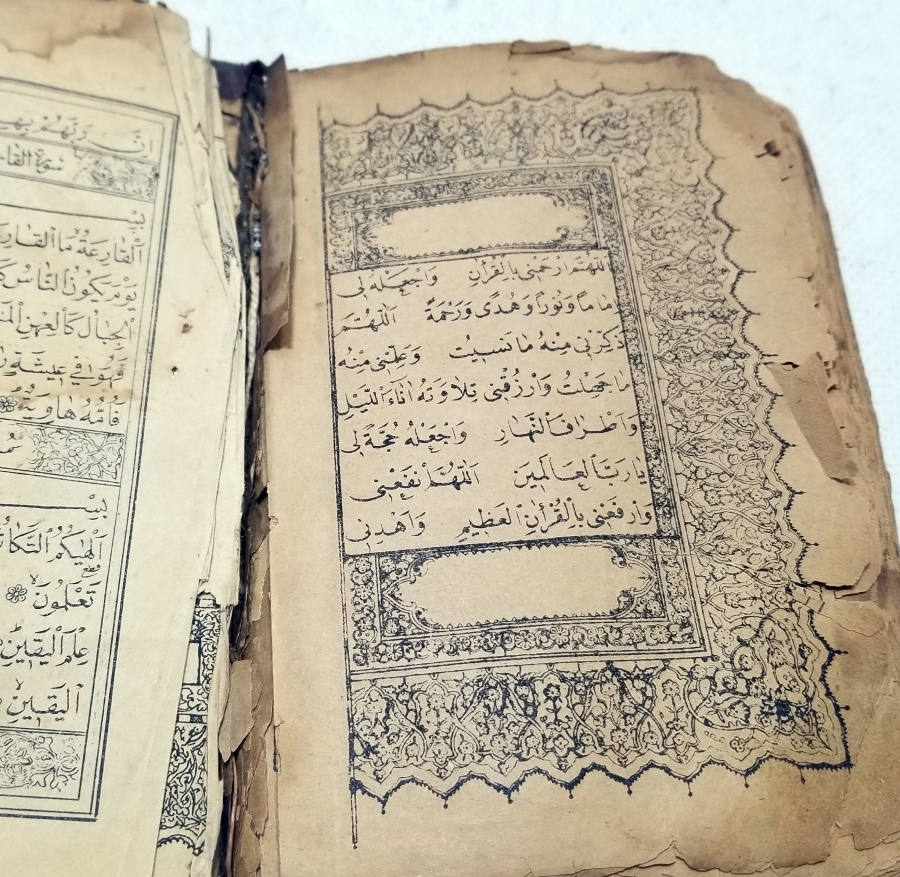 اللهم ارحمنى بالقرآن واجعله لى
اماماً وَنُوراً وَهُدًى وَرَحْمَةً اَللّٰهُمَّ
ذَكِّرْنِى مِنْهُ مَا نَسِيتُ وَعَلِّمْنِى مِنْهُ
مَا جَهِلْتُ وَارْزُقْنِى تِلَاوَتَهُ اٰنَاءَ الَّيْلِ
وَاَطْرَافَ النَّهَارِ وَاجْعَلْهُ حُجَّةً لِى
يَارَبَّ الْعَالَمِينَ اَللّٰهُمَّ انْفَعْنِى
وَارْفَعْنِى بِالْقُرْاٰنِ الْعَظِيمِ وَاهْدِنِى
اِنَّ رَبَّهُمْ بِهِمْ
سورة القا
بِسْـ
اَلْقَارِعَةُ مَا الْقَارِعَةُ
يَوْمَ يَكُونُ النَّاسُ كَ
الْجِبَالُ كَالْعِهْنِ الْمَنْ
فَهُوَ فِى عِيشَةٍ
فَاُمُّهُ هَاوِيَةٌ
بِسْـ
اَلْهٰيكُمُ التَّكَاثُ
تَعْلَمُونَ
عِلْمَ الْيَقِينِ
الْيَقِينِ